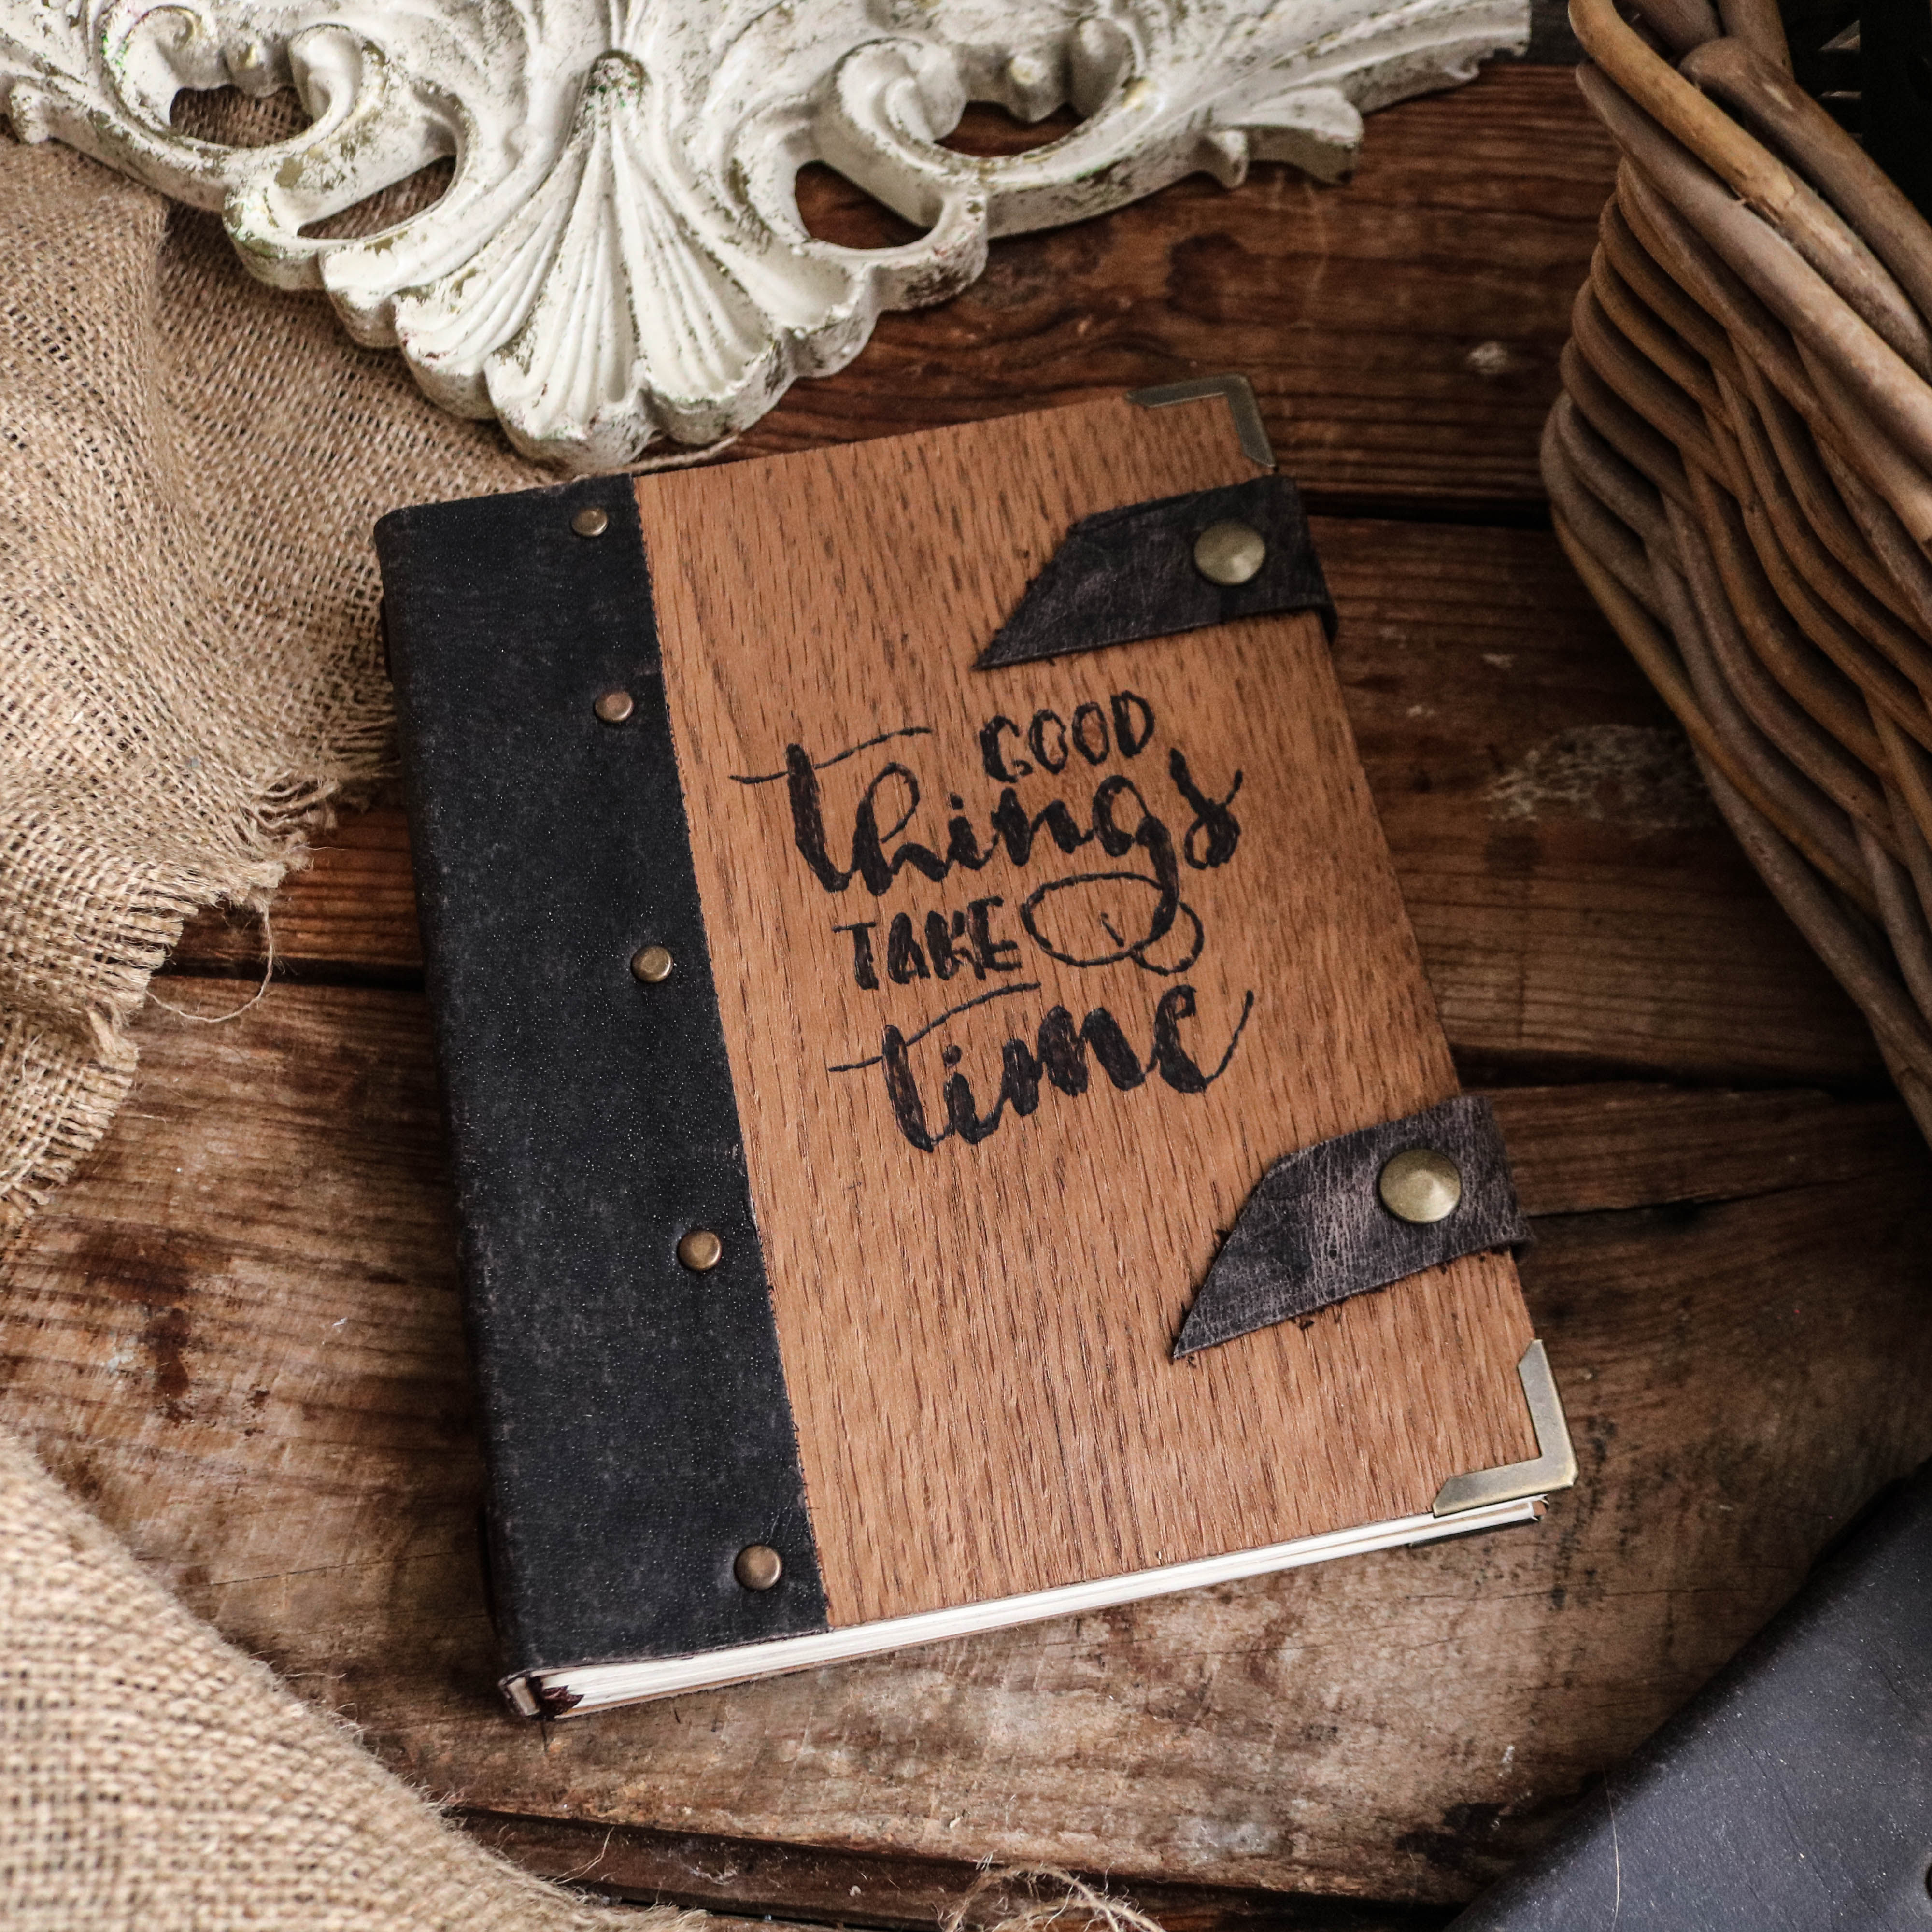 GOOD
things
TAKE
time